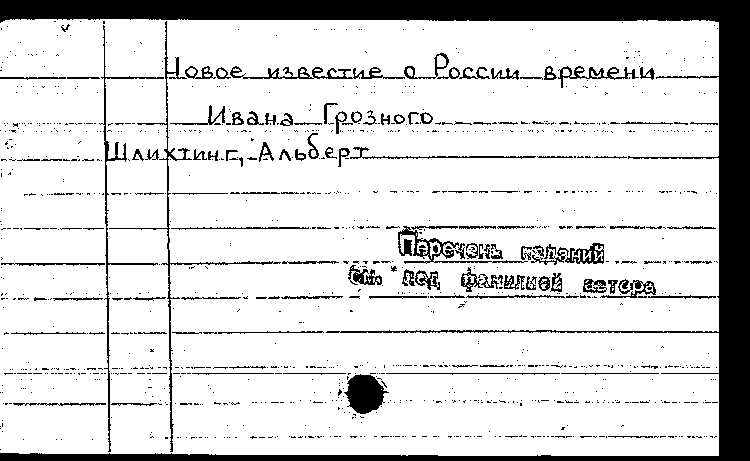 Новое известие о России времени
Ивана Грозного
Шлихтинг, Альберт
Перечень изданий
см. под фамилией автора